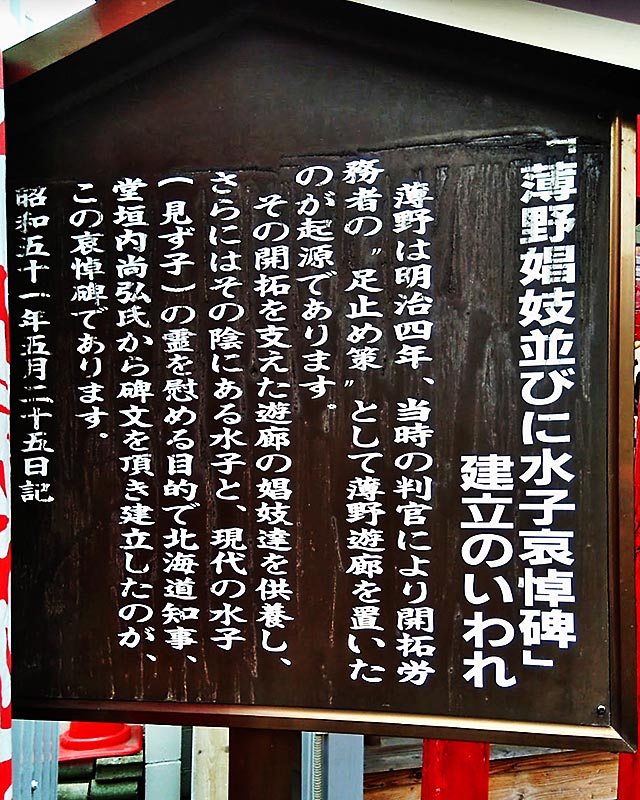 「薄野娼妓並びに水子哀悼碑」
建立のいわれ
薄野は明治四年、当時の判官により開拓労
務者の〝足止め策〟として薄野遊廓を置いた
のが起源であります。
その開拓を支えた遊廓の娼妓達を供養し、
さらにはその陰にある水子と、現代の水子
(見ず子)の霊を慰める目的で北海道知事、
堂垣内尚弘氏から碑文を頂き建立したのが、
この哀悼碑であります。
昭和五十一年五月二十五日記